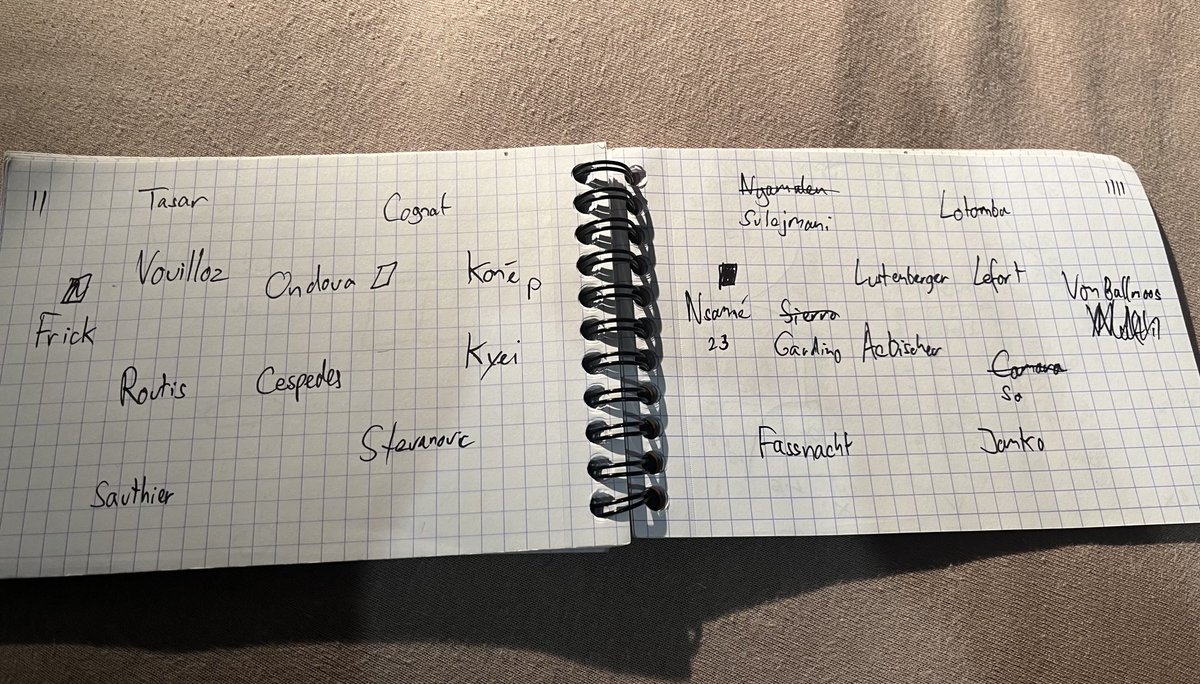 11
Tasar
Cognat
Vouilloz
Ondoua
Koné p
Frick
Kyei
Routis
Cespedes
Stevanovic
Sauthier
Ngamaleu
Sulejmani
Lotomba
1111
Lustenberger
Lefort
Von Ballmoos
Nsamé
Sierro
23
Gardino
Aebischer
Camara
So
Fassnacht
Janko